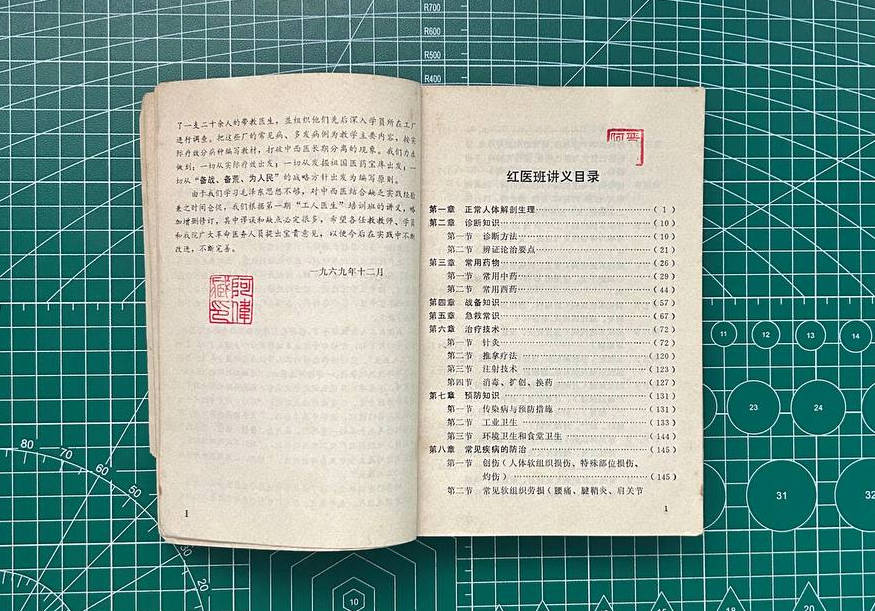 了一支二十余人的带教医生，并组织他们先后深入学员所在工厂
进行调查，把这些厂的常见病、多发病例为教学主要内容，按实
际疗效分病种编写教材，打破中西医长期分离的现象。我们力求
做到：一切从实际疗效出发；一切从发掘祖国医药宝库出发；一
切从“备战、备荒、为人民”的战略方针出发为编写原则。
由于我们学习毛泽东思想不够，对中西医结合缺乏实践经验
兼之时间仓促，我们根据第一期“工人医生”培训班的讲义，略
加增删修订，其中谬误和缺点必定很多，希望各任教教师、学员
和我院广大革命医务人员提出宝贵意见，以便今后在实践中不断
改进，不断完善。
一九六九年十二月
阿伟藏书
1
红医班讲义目录
第一章 正常人体解剖生理……………………（ 1 ）
第二章 诊断知识……………………（10）
第一节 诊断方法……………………（10）
第二节 辨证论治要点……………………（21）
第三章 常用药物……………………（26）
第一节 常用中药……………………（29）
第二节 常用西药……………………（44）
第四章 战备知识……………………（57）
第五章 急救常识……………………（67）
第六章 治疗技术……………………（72）
第一节 针灸……………………（72）
第二节 推拿疗法……………………（120）
第三节 注射技术……………………（123）
第四节 消毒、扩创、换药……………………（127）
第七章 预防知识……………………（131）
第一节 传染病与预防措施……………………（131）
第二节 工业卫生……………………（133）
第三节 环境卫生和食堂卫生……………………（144）
第八章 常见疾病的防治……………………（145）
第一节 创伤（人体软组织损伤、特殊部位损伤、
灼伤）……………………（145）
第二节 常见软组织劳损（腰痛、腱鞘炎、肩关节
1
R700
R600
R500
R400
11
12
13
14
23
24
31
32
80
70
60
50
20
10
10
15
20